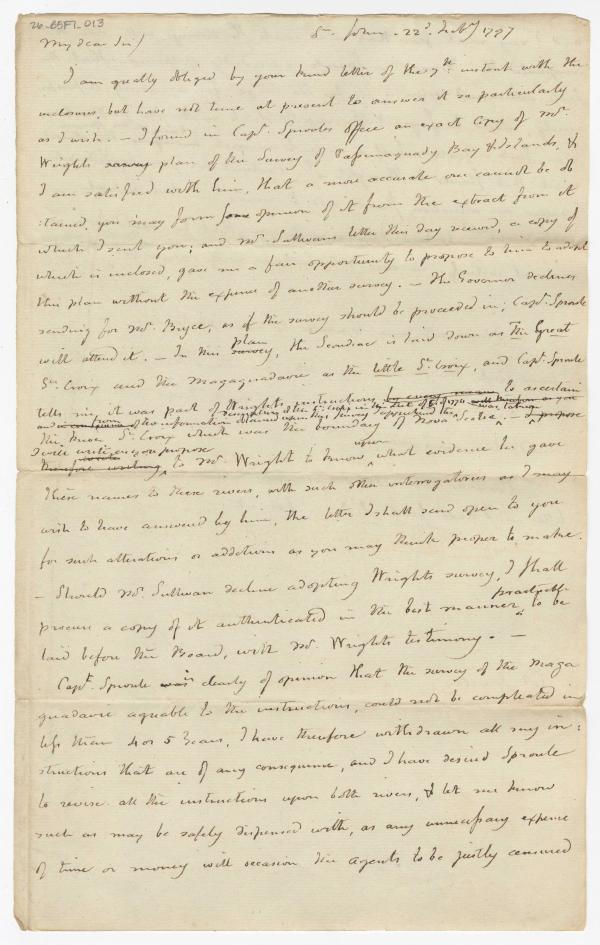 26-65F1-013
St. John 22d. Feby 1797
My dear Sir/
I am greatly obliged by your kind letter of the 7th. instant with the
inclosures, but have not time at present to answer it so particularly
as I wish. — I found in Capt. Sproules office an exact Copy of Mr.
Wrights plan of the Survey of Passimaquady Bay & Islands, &
I am satisfied with him, that a more accurate one cannot be ob
:tained, you may form some opinion of it from the extract from it
which I sent you; and Mr. Sullivans letter this day received, a copy of
which is inclosed, gave me a fair opportunity to propose to him to adopt
this plan without the expence of another survey. — The Governor declines
sending for Mr. Bryce, as if the survey should be proceeded in, Capt. Sproule
will attend it. — In this plan survey, the Scoudiac is laid down as The Great
St. Croix and the Magaguadavic as the little St. Croix, and Capt. Sproule
tells me, it was part of Wrights instructions to ascertain
the River St. Croix which was the boundary of Nova Scotia. — I propose
I will write as you propose
therefore writing to Mr. Wright to know upon what evidence he gave
These names to these rivers, with such other interrogatories as I may
wish to have answered by him, the letter I shall send open to you
for such alterations or additions as you may think proper to make.
— Should Mr. Sullivan decline adopting Wrights survey, I shall
procure a copy of it authenticated in the best manner practicable to be
laid before the Board, with Mr. Wrights testimony. —
Capt. Sproule was is clearly of opinion that the survey of the Maga
guadavic agreable to the instructions, could not be compleated in
less than 4 or 5 Years, I have therefore withdrawn all my in:
structions that are of any consequence, and I have desired Sproule
to revise all the instructions upon both rivers, & let me know
such as may be safely dispensed with, as any unnecessary expence
of time or money will occasion the agents to be justly censured